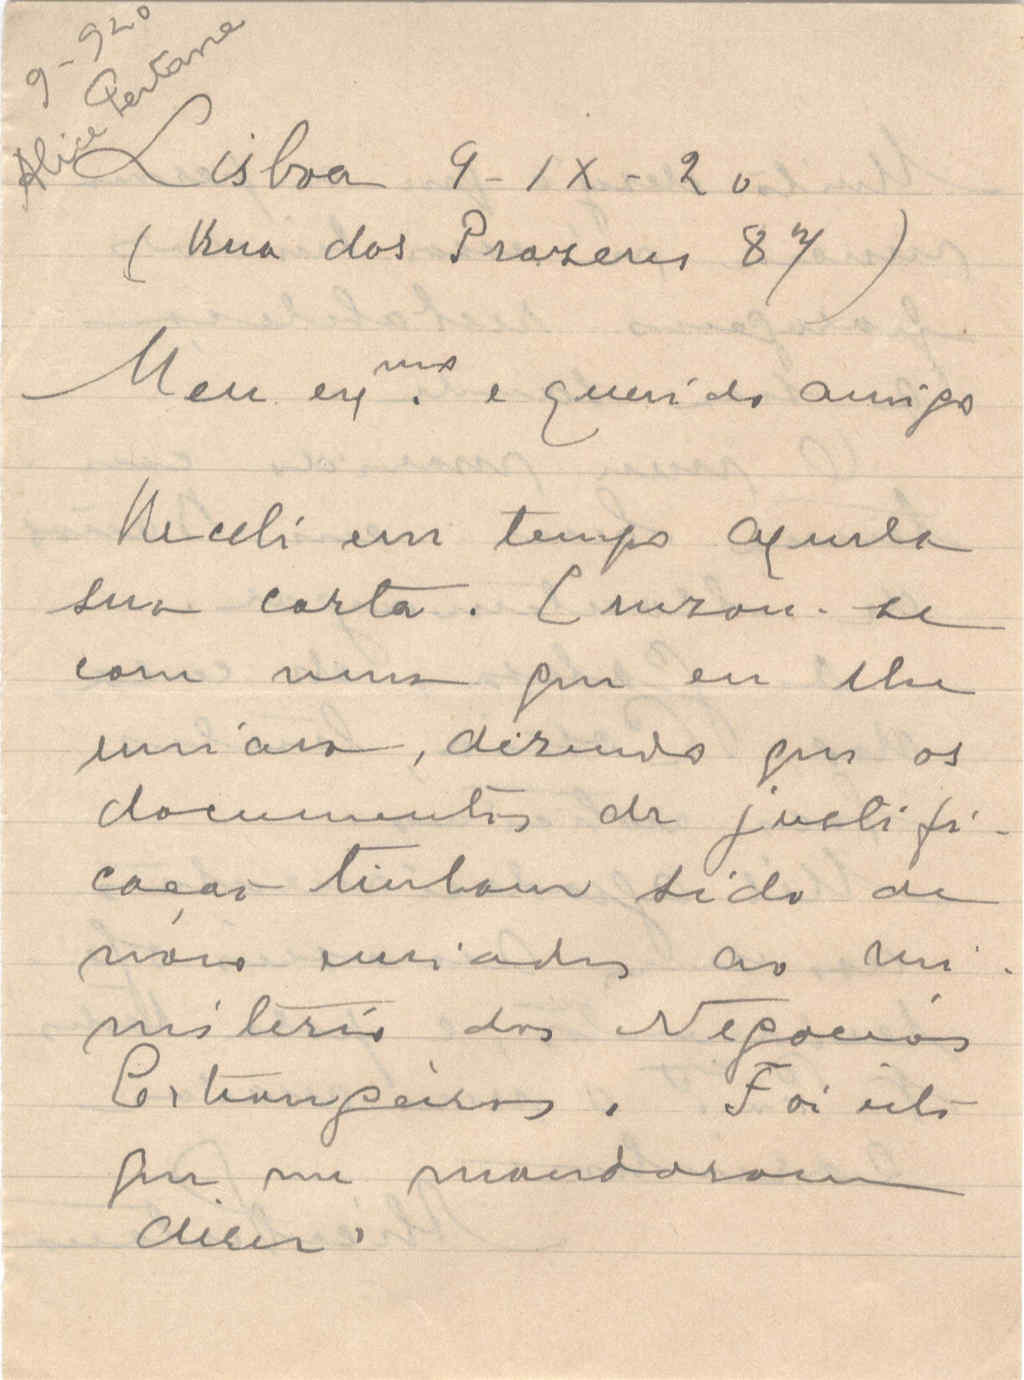 9-920
Alice Pestana
Lisboa 9-IX-20
(Rua dos Prazeres 87)
Meu ex.mo e querido amigo
Recebi em tempo aquela
sua carta. Cruzou-se
com uma que eu lhe
enviava, dizendo que os
documentos de justifi-
cação tinham sido de
novo enviados ao Mi-
nisterio dos Negocios
Estrangeiros. Foi isto
que me mandaram
dizer.